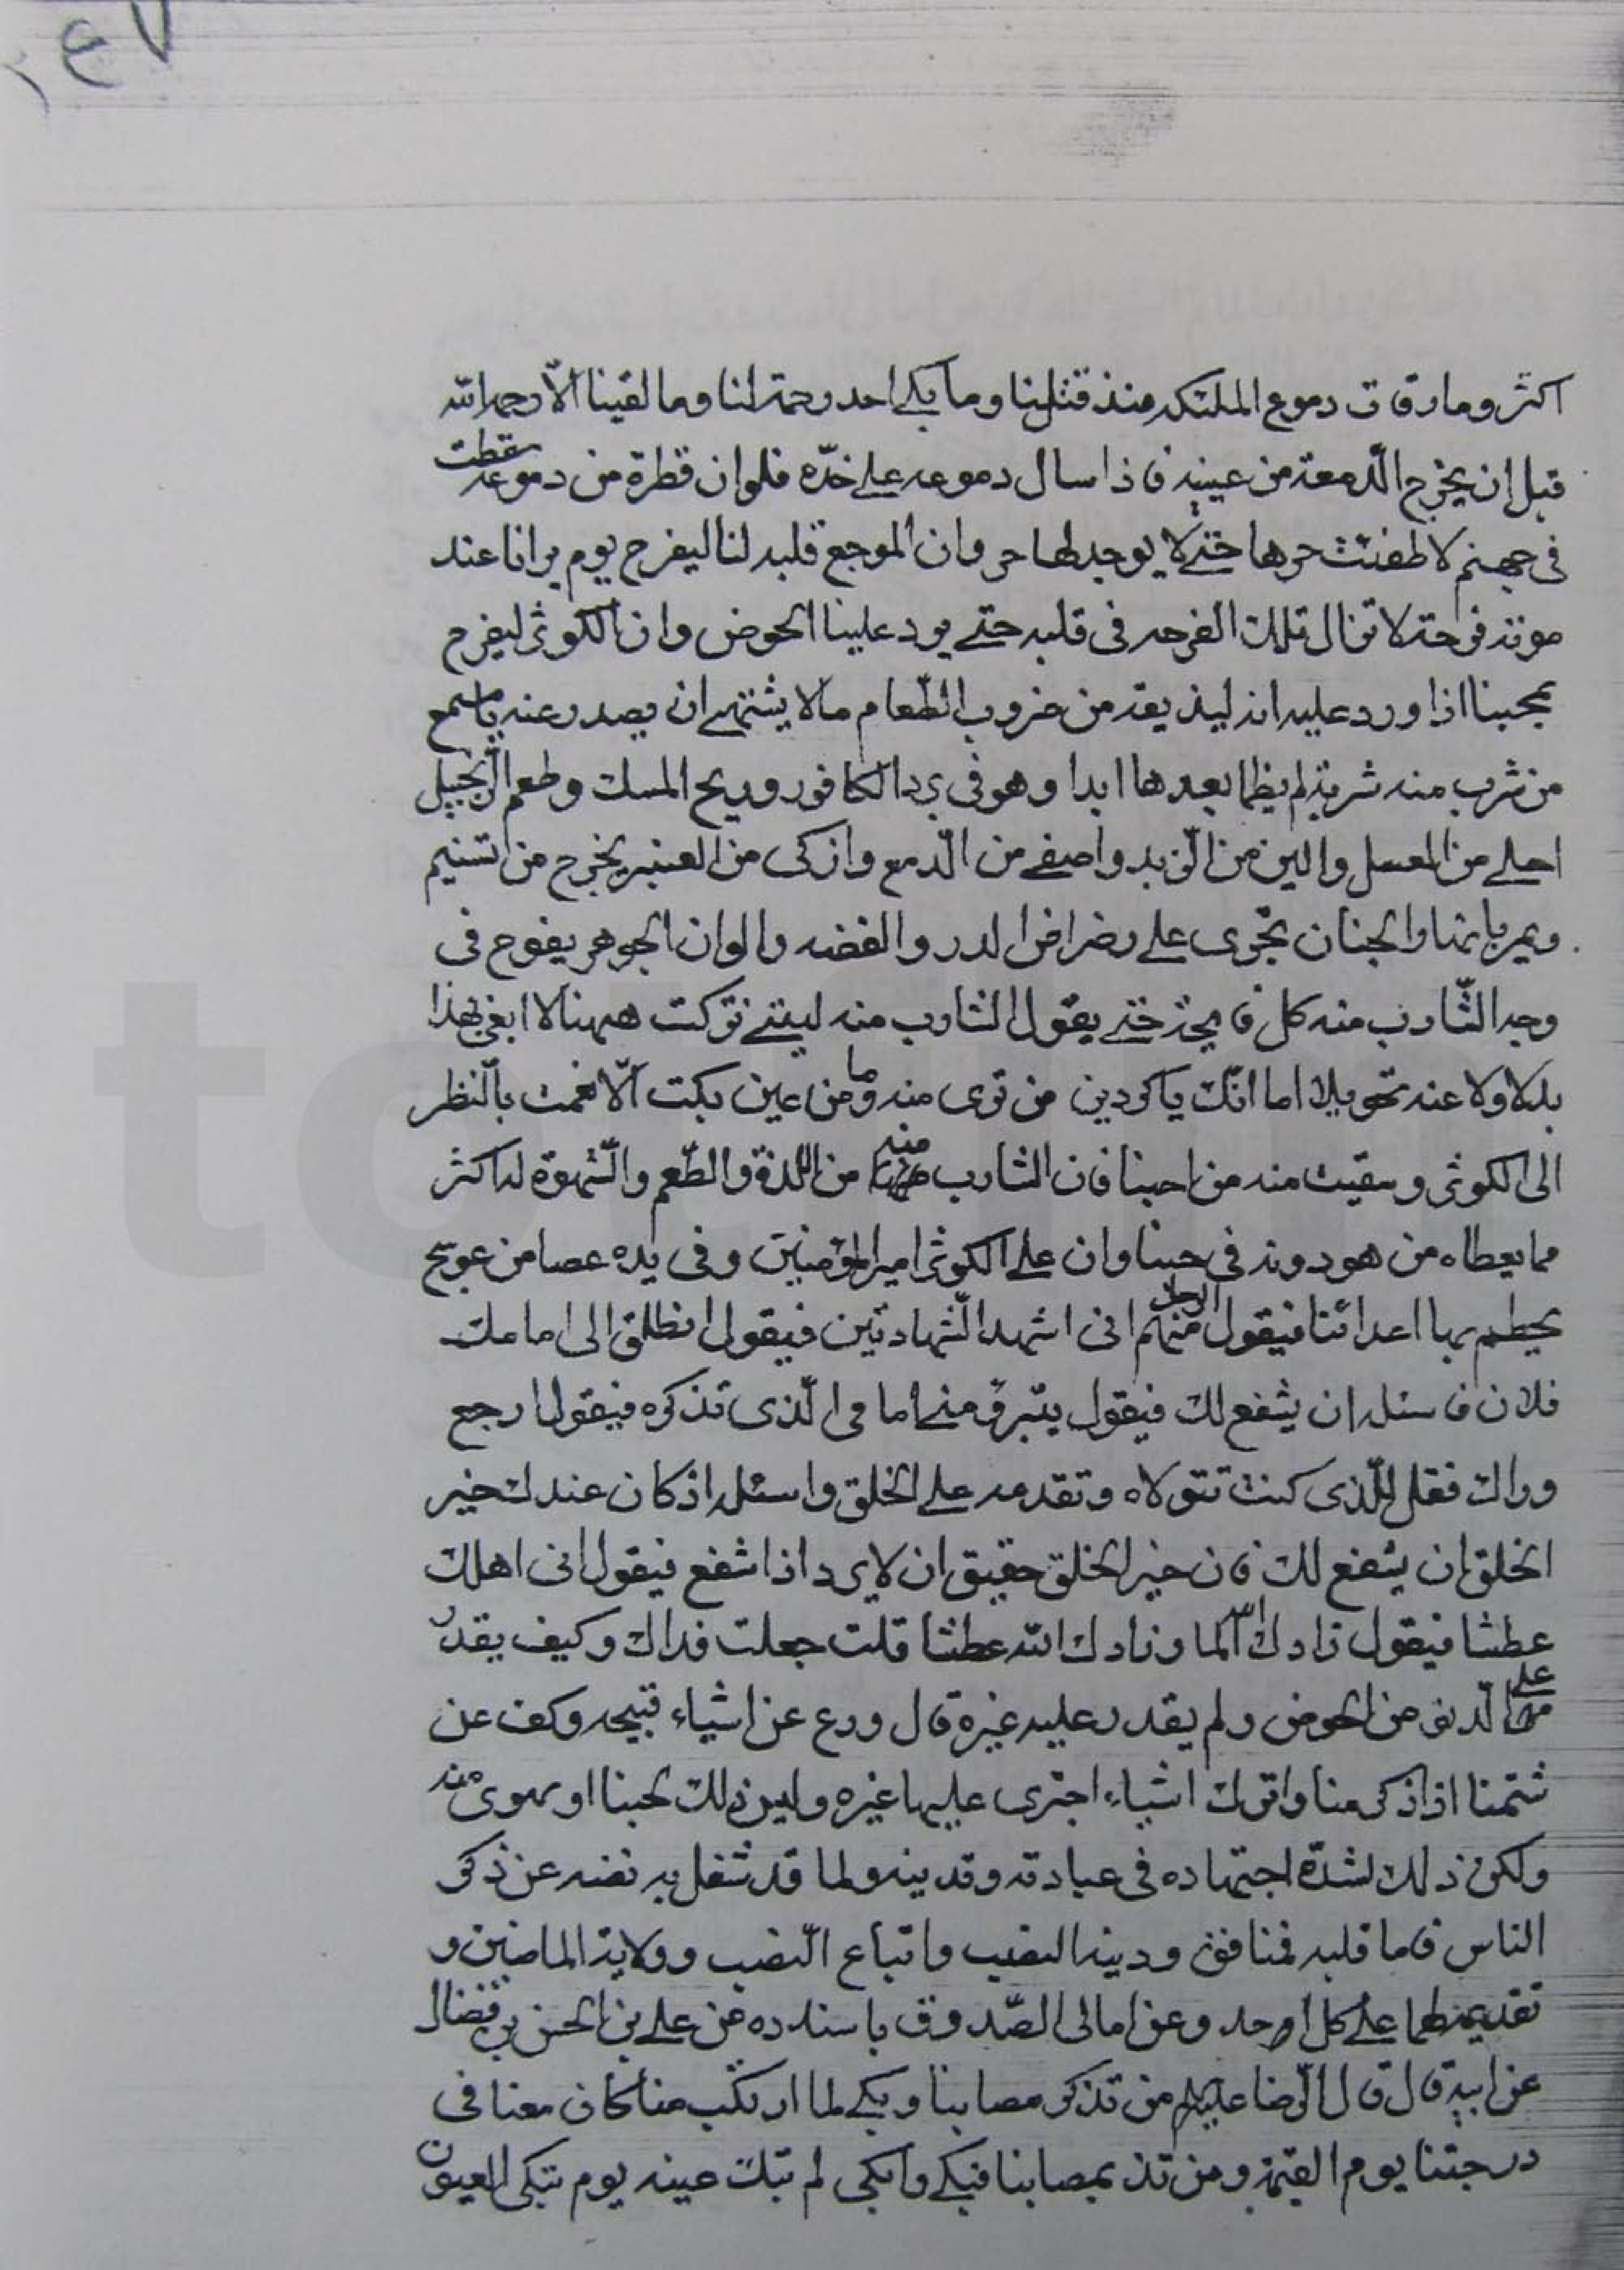 ١٤٧
اكثر وما رقات دموع الملئكه منذ قتلنا وما بكى احد رحمة لنا وما لقينا الّا رحمه الله
قبل ان يخرج الّدمعة من عينه فاذا سال دموعه على خدّه فلوان قطرة من دموعه سقطت
فى جهنم لاطفئت حرها حتى لا يوجد لها حر وان الموجع قلبه لنا ليفرح يوم يرانا عند
موته فرحة لا تزال تلك الفرحه فى قلبه حتى يرد علينا الحوض وان الكوثر ليفرح
بمحبنا اذا ورد عليه انه ليذيقه من ضروب الطّعام مالا يشتهى ان يصدر عنه يا مسمع
من شرب منه شربة لم يظما بعدها ابدا وهو فى برد الكافور وريح المسك وطعم الزنجبيل
احلى من العسل والين من الّزبد واصفى من الّدمع وازكى من العنبر يخرج من تسنيم
ويمر بانهار الجنان تجرى على رضراض الدر والفضه والوان الجوهر يفوح فى
وجه الشّارب منه كل فايحة حتى يقول الشارب منه ليتنى تركت ههنا لا ابغى بهذا
بدلا ولا عنه تحويلا اما انّك يا كردين من تروى منه وما من عين بكت الّا نعمت بالّنظر
الى الكوثر وسقيت منه من احبنا فان الشارب منه من اللذة والطّعم والّشهوة له اكثر
مما يعطاه من هو دونه فى حبنا وان على الكوثر امير المؤمنين وفى يده عصا من عوسج
يحطم بها اعدائنا فيقول الرجل منهم انى اشهد الّشهادتين فيقول انطلق الى امامك
فلان فاسئله ان يشفع لك فيقول يتبرؤ منى امامى الّذى تذكره فيقول ارجع
ورائك فقل للّذى كنت تتولاه وتقدمه على الخلق واسئله اذ كان عندك خير
الخلق ان يشفع لك فان خير الخلق حقيق ان لا يرد اذا شفع فيقول انى اهلك
عطشا فيقول زادك الله الما وزادك الله عطشا قلت جعلت فداك وكيف يقدر
على الّدنو من الحوض ولم يقدر عليه غيرة قال ورع عن اشياء قبيحه وكف عن
شتمنا اذا ذكرمنا واترك اشياء اجترى عليها غيره وليس ذلك لحبنا او بهوى منه
ولكن ذلك لشدّة اجتهاده فى عبادته وتدينه ولما قد شغل به نفسه عن ذكر
الناس فاما قلبه فمنافق ودينه النصب واتباع الّنصب وولاية الماضين و
تقديمه لهما على كل احد وعن امالى الصّدوق باسناده عن على بن الحسن بن فضال
عن ابيه قال قال الّرضا عليه السلام من تذكر مصابنا وبكى لما ارتكب منا كان معنا فى
درجتنا يوم القيمة ومن تذ بمصابنا فبكى وابكى لم تبك عينه يوم تبكى العيون